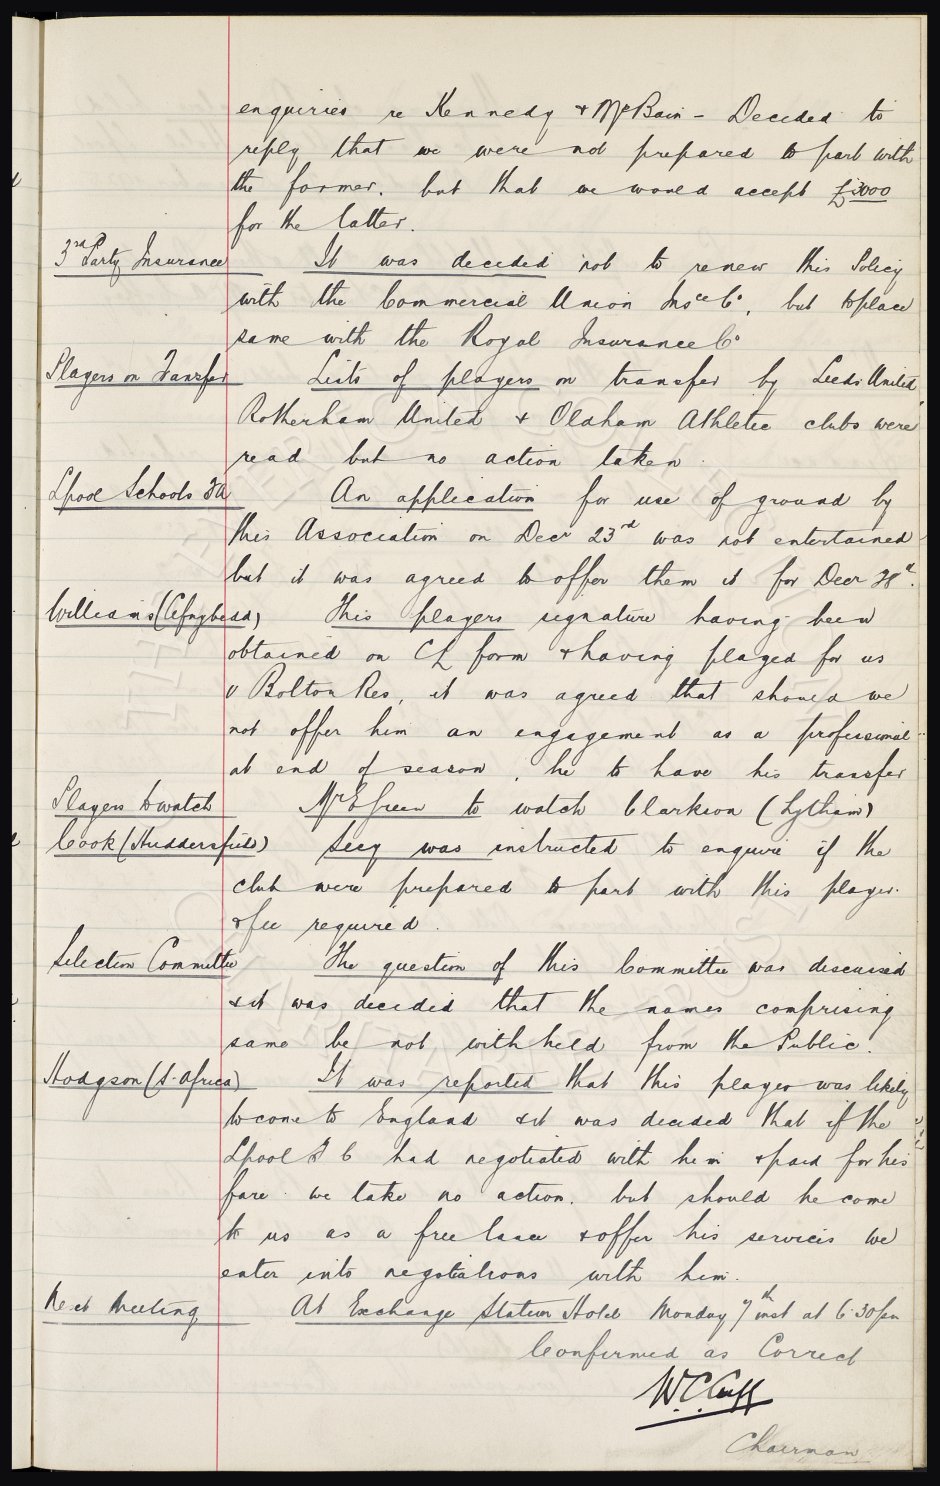 enquiries re Kennedy & McBain - Decided to
reply that we were not prepared to part with
the former, but that we would accept £3000
for the latter.
3rd Party Insurance It was decided not to renew this Policy
with the Commercial Union Insce Co, but to place
same with the Royal Insurance Co
Players on Transfer Lists of players on transfer by Leeds United
Rotherham United & Oldham Athletic clubs were
read but no action taken.
Lpool Schools FA An application for use of ground by
this Association on Decr 23rd was not entertained
but it was agreed to offer them it for Decr
Williams (Cefnybedd) This players signature having been
obtained on Ch form & having played for us
v Bolton Res, it was agreed that should we
not offer him an engagement as a professional
at end of season, he to have his transfer
Players to watch Mr E Green to watch Clarkson (Lytham)
Cook (Huddersfield) Secy was instructed to enquire if the
club were prepared to part with this player
& fee required.
Selection Committee The question of this Committee was discussed
& it was decided that the names comprising
same be not withheld from the Public.
Hodgson (S. Africa) It was reported that this player was likely
to come to England & it was decided that if the
Lpool F C had negotiated with him & paid for his
fare we take no action, but should he come
to us as a free lance & offer his services we
enter into negotiations with him.
Next Meeting At Exchange Station Hotel Monday 7th inst at 6.30pm
Confirmed as Correct
W.C. Cuff
Chairman